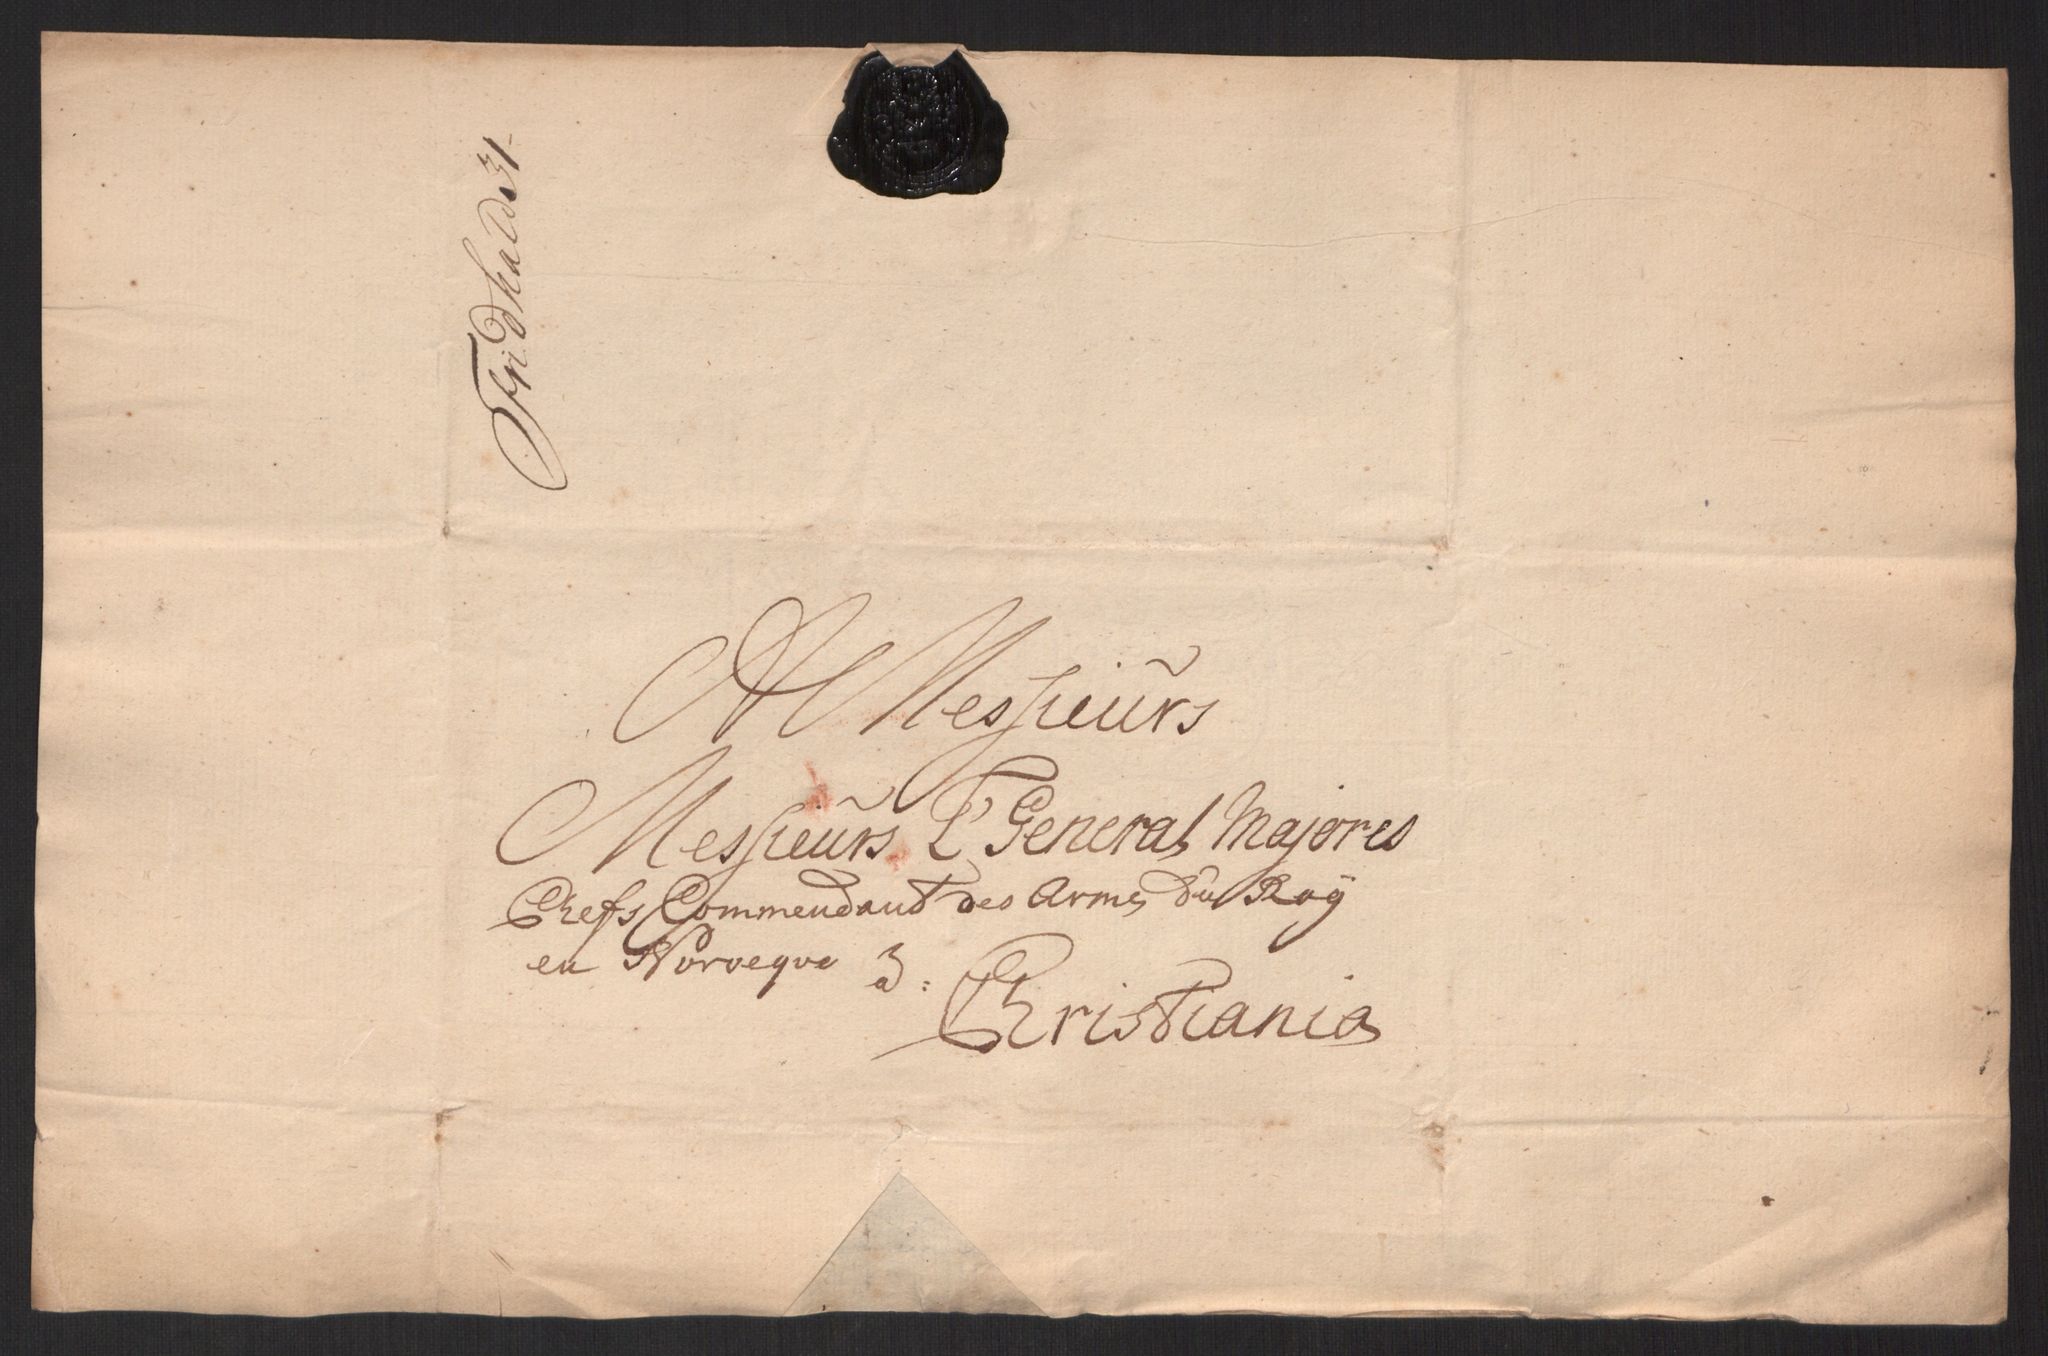 Fridhald 31-
A Messieurs
Messieurs L' General Majores
Chefs Commendant des Arme du Roÿ
en Norvegue
a: Christiania